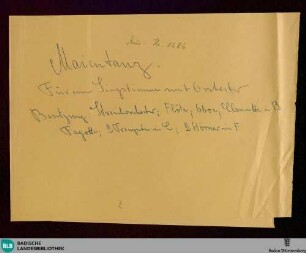 Mus. Hs. 1286
Maientanz.
Für eine Singstimme mit Orchester
Besetzung: Streichorchester, Flöte, Oboe, Clarinette in B
Fagotto, 2 Trompeten in C, 2 Hörner in F.
2
BLB BADISCHE
LANDESBIBLIOTHEK
Baden-Württemberg